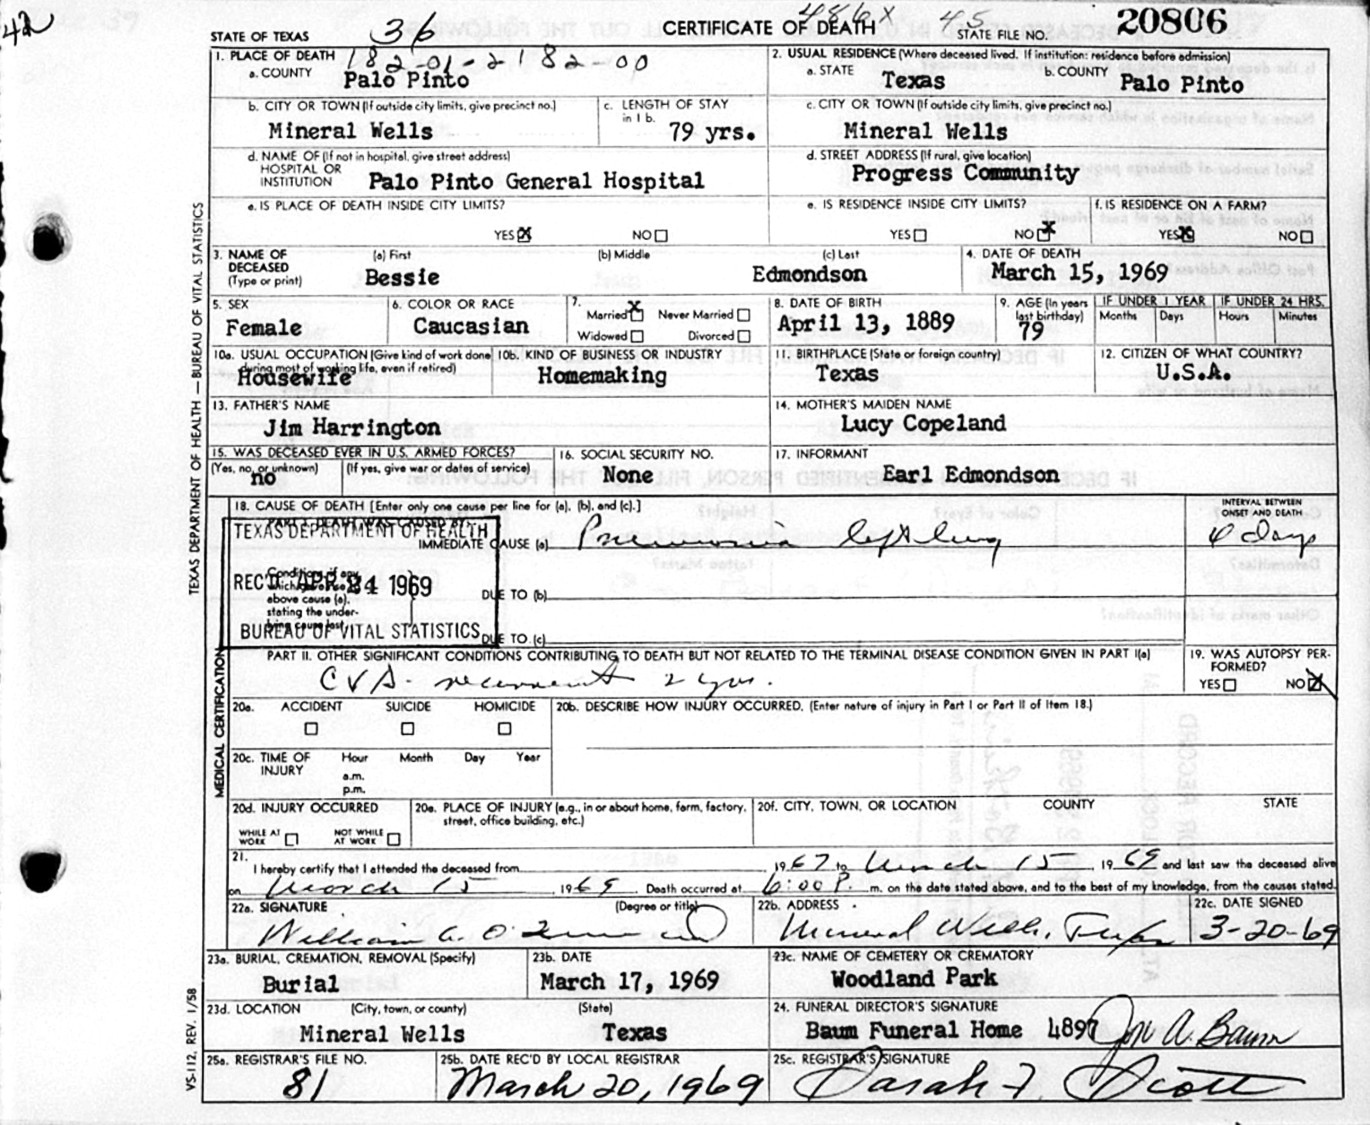 42
STATE OF TEXAS 36 CERTIFICATE OF DEATH 486X 45 STATE FILE NO. 20806
1. PLACE OF DEATH 182-01-2182-00
a. COUNTY Palo Pinto
2. USUAL RESIDENCE (Where deceased lived. If institution: residence before admission)
a. STATE Texas b. COUNTY Palo Pinto
b. CITY OR TOWN (If outside city limits, give precinct no.) Mineral Wells
c. LENGTH OF STAY in 1 b. 79 yrs.
c. CITY OR TOWN (If outside city limits, give precinct no.) Mineral Wells
d. NAME OF (If not in hospital, give street address)
HOSPITAL OR
INSTITUTION Palo Pinto General Hospital
d. STREET ADDRESS (If rural, give location)
Progress Community
e. IS PLACE OF DEATH INSIDE CITY LIMITS?
YES X NO
e. IS RESIDENCE INSIDE CITY LIMITS?
YES NO X
f. IS RESIDENCE ON A FARM?
YES X NO
3. NAME OF DECEASED (Type or print)
(a) First (b) Middle (c) Last
Bessie Edmondson
4. DATE OF DEATH
March 15, 1969
5. SEX
Female
6. COLOR OR RACE
Caucasian
7. Married X Never Married
Widowed Divorced
8. DATE OF BIRTH
April 13, 1889
9. AGE (In years last birthday)
79
IF UNDER 1 YEAR IF UNDER 24 HRS.
Months Days Hours Minutes
10a. USUAL OCCUPATION (Give kind of work done during most of working life, even if retired)
Housewife
10b. KIND OF BUSINESS OR INDUSTRY
Homemaking
11. BIRTHPLACE (State or foreign country)
Texas
12. CITIZEN OF WHAT COUNTRY?
U.S.A.
13. FATHER'S NAME
Jim Harrington
14. MOTHER'S MAIDEN NAME
Lucy Copeland
15. WAS DECEASED EVER IN U.S. ARMED FORCES?
(Yes, no, or unknown) (If yes, give war or dates of service)
no
16. SOCIAL SECURITY NO.
None
17. INFORMANT
Earl Edmondson
18. CAUSE OF DEATH [Enter only one cause per line for (a), (b), and (c).]
INTERVAL BETWEEN
ONSET AND DEATH
PART I. DEATH WAS CAUSED BY:
TEXAS DEPARTMENT OF HEALTH
IMMEDIATE CAUSE (a) Pneumonia left lung days
REC'D APR 24 1969
Conditions, if any, which gave rise to above cause (a), stating the underlying cause last.
DUE TO (b)
BUREAU OF VITAL STATISTICS
DUE TO (c)
PART II. OTHER SIGNIFICANT CONDITIONS CONTRIBUTING TO DEATH BUT NOT RELATED TO THE TERMINAL DISEASE CONDITION GIVEN IN PART I(a)
CVA - recurrent 2 yrs.
19. WAS AUTOPSY PERFORMED?
YES NO X
20a. ACCIDENT SUICIDE HOMICIDE
20b. DESCRIBE HOW INJURY OCCURRED. (Enter nature of injury in Part I or Part II of Item 18.)
20c. TIME OF INJURY Hour Month Day Year
a.m.
p.m.
20d. INJURY OCCURRED
WHILE AT WORK NOT WHILE AT WORK
20e. PLACE OF INJURY (e.g., in or about home, farm, factory, street, office building, etc.)
20f. CITY, TOWN, OR LOCATION COUNTY STATE
21.
I hereby certify that I attended the deceased from 1967 to March 15 1969 and last saw the deceased alive
on March 15 1969 Death occurred at 6:00 P. m. on the date stated above, and to the best of my knowledge, from the causes stated.
22a. SIGNATURE (Degree or title)
William
22b. ADDRESS
Mineral Wells, Texas
22c. DATE SIGNED
3-20-69
23a. BURIAL, CREMATION, REMOVAL (Specify)
Burial
23b. DATE
March 17, 1969
23c. NAME OF CEMETERY OR CREMATORY
Woodland Park
23d. LOCATION (City, town, or county) (State)
Mineral Wells Texas
24. FUNERAL DIRECTOR'S SIGNATURE
Baum Funeral Home 4897 Joe A. Baum
25a. REGISTRAR'S FILE NO.
81
25b. DATE REC'D BY LOCAL REGISTRAR
March 20, 1969
25c. REGISTRAR'S SIGNATURE
Sarah F. Scott
TEXAS DEPARTMENT OF HEALTH — BUREAU OF VITAL STATISTICS
MEDICAL CERTIFICATION
VS-112, REV. 1/58